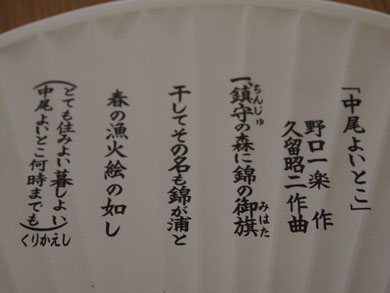 「中尾よいとこ」
野口一楽 作
久留昭二作曲
一、鎮守の森に錦の御旗
ちんじゅ
みはた
干してその名も錦が浦と
春の漁火絵の如し
(とても住みよい暮しよい
中尾よいとこ何時までも)
くりかえし